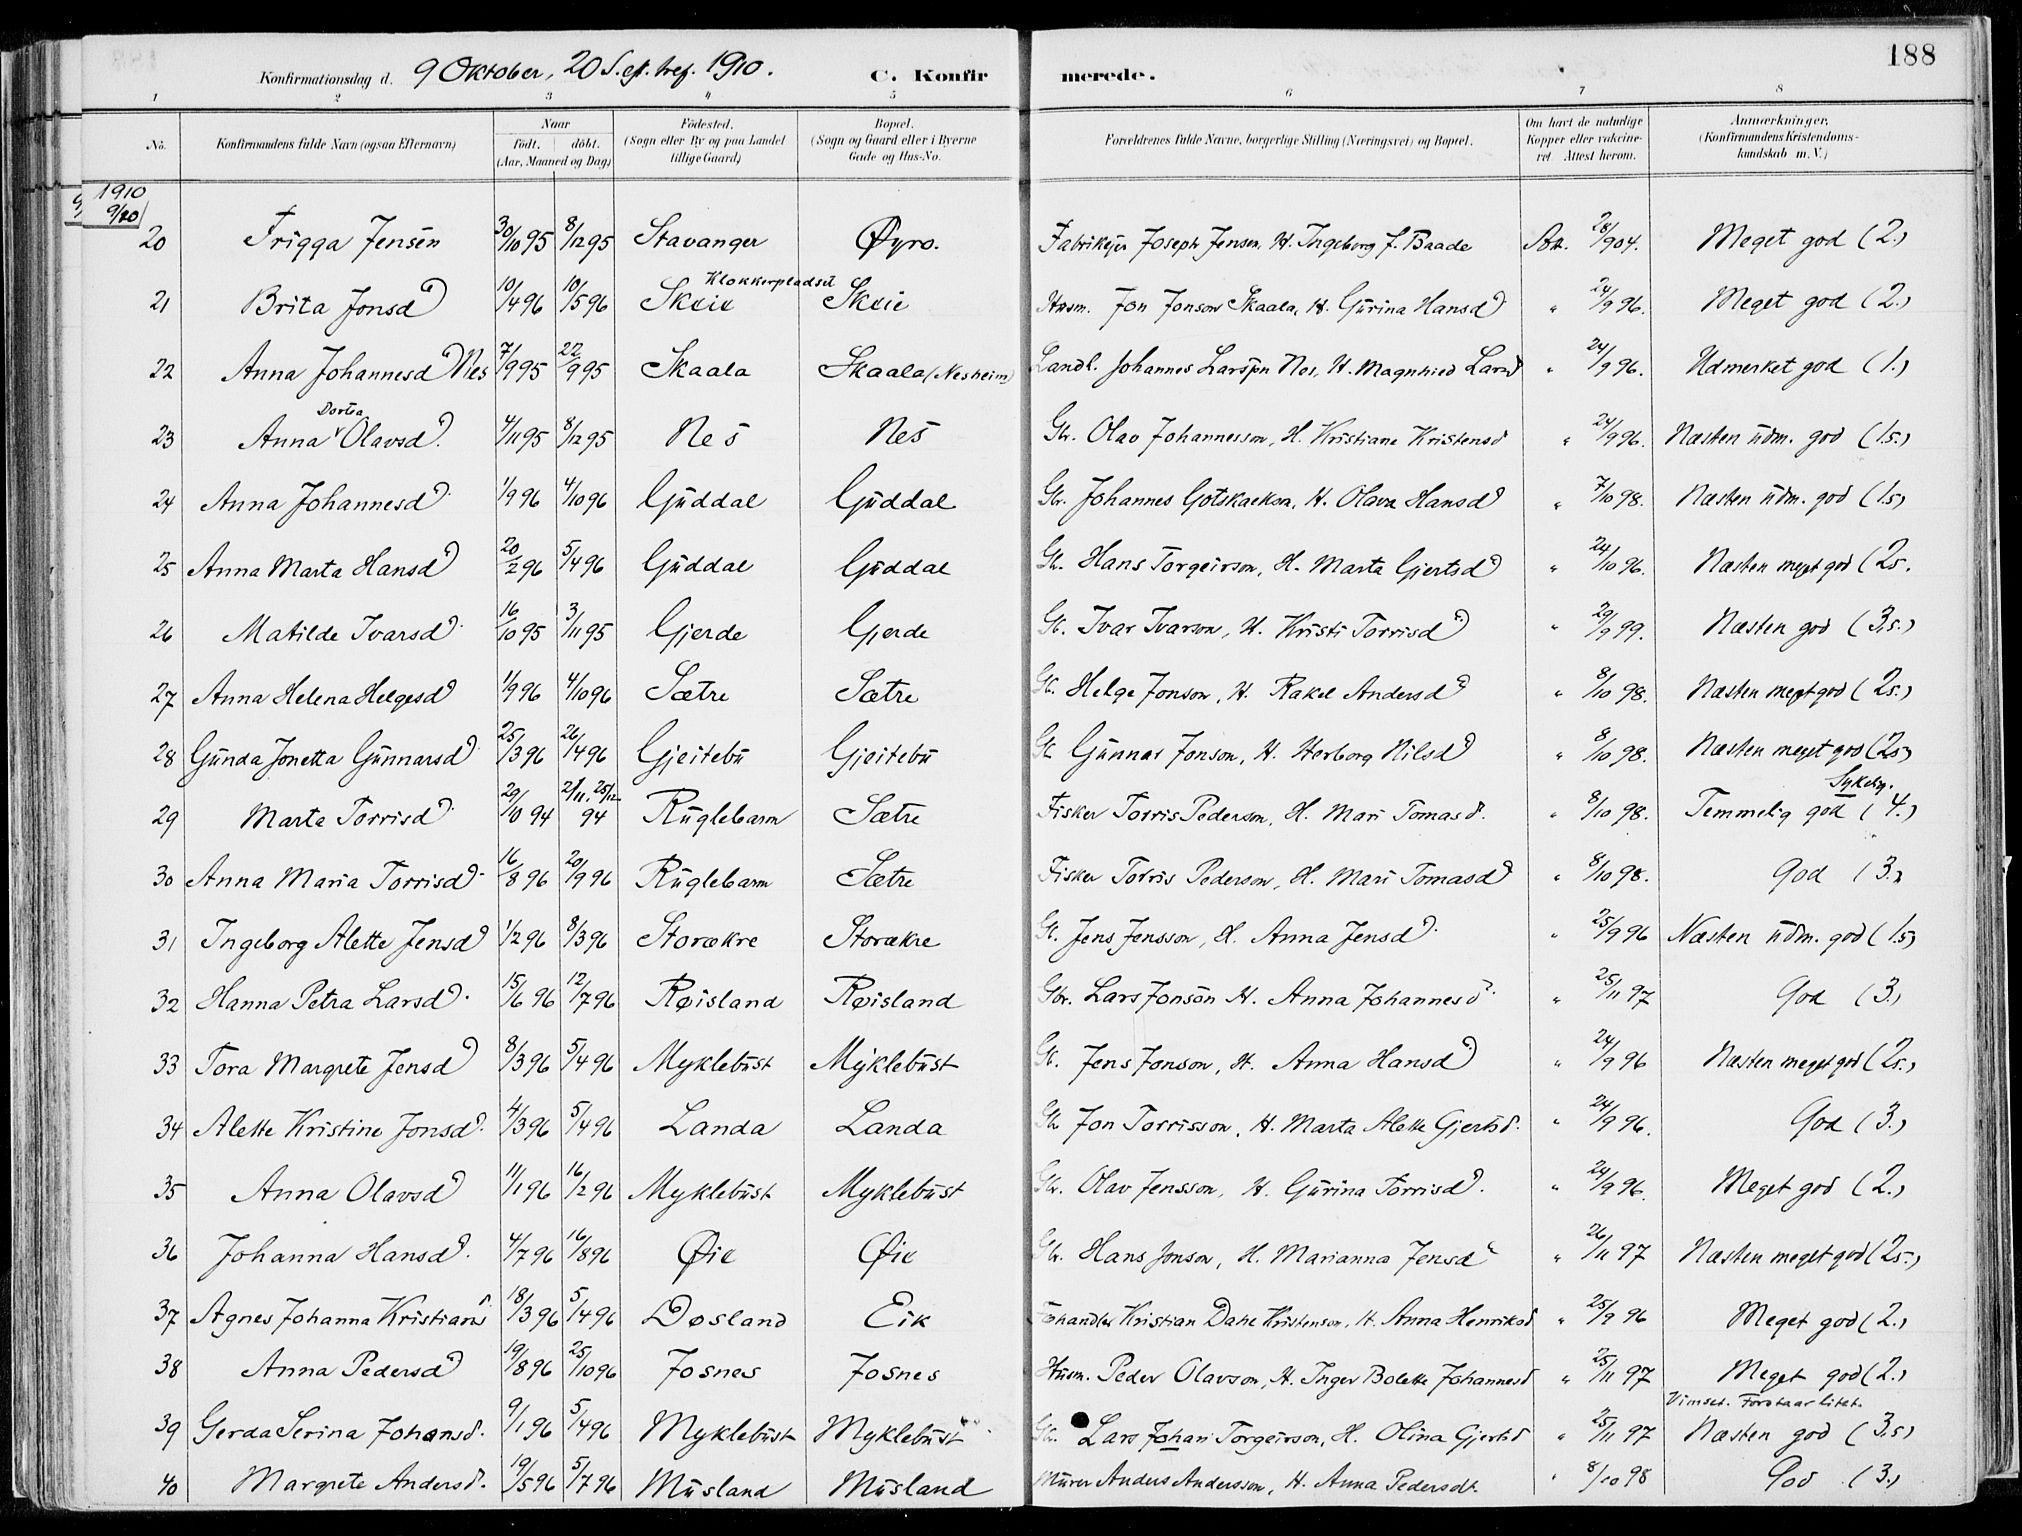 188
Konfirmationsdag d. 9 Oktober, 20 S. eft. tref. 1910. C. Konfirmerede.
1 2 3 4 5 6 7 8
No. Konfirmandens fulde Navn (ogsaa Efternavn) Naar födt. döbt. (Aar, Maaned og Dag) Födested. (Sogn eller By og paa Landet tillige Gaard) Bopæl. (Sogn og Gaard eller i Byerne Gade og Hus-No. Forældrenes fulde Navne, borgerlige Stilling (Næringsvei) og Bopæl. Om havt de naturlige Kopper eller vakcineret. Attest herom. Anmærkninger. (Konfirmandens Kristendomskundskab m. V.)
1910
9/10
20 Frigga Jensen 30/10 95 8/12 95 Stavanger Øyro. Fabrikejer Joseph Jensen, H. Ingeborg f. Baade Att. 28/9 04. Meget god (2.)
21 Brita Jonsd 10/4 96 10/5 96 Skeie Klokkerpladset Skeie Husm. Jon Jonson Skaala, H. Gurina Hansd " 24/9 96. Meget god (2.)
22 Anna Johannesd Nes 7/9 95 22/9 95 Skaala Skaala (Nesheim) Landh. Johannes Larsson Nes, H. Magnhied Larsd " 24/9 96. Udmerket god (1.)
23 Anna Dortea Olavsd. 4/11 95 8/12 95 Nes Nes Gbr. Olav Johannesson, H. Kristiane Kristensd " 24/9 96. Næsten udm. god (1.5.)
24 Anna Johannesd. 1/9 96 4/10 96 Guddal Guddal Gbr. Johannes Gotskalkson, H. Olava Hansd " 7/10 98. Næsten udm. god (1.5)
25 Anna Marta Hansd 20/2 96 5/4 96 Guddal Guddal Gbr. Hans Torgeirson, H. Marta Gjertsd " 24/10 96. Næsten meget god (2.5.
26 Matilde Ivarsd. 16/10 95 3/11 95 Gjerde Gjerde Gbr. Ivar Ivarson, H. Kristi Torrisd " 29/9 99. Næsten god (3.5.)
27 Anna Helena Helgesd 1/9 96 4/10 96 Sætre Sætre Gbr. Helge Jonson, H. Rakel Andersd " 8/10 98. Næsten meget god (2.5.)
28 Gunda Jonetta Gunnarsd. 25/3 96 26/4 96 Gjeitebu Gjeitebu Gbr. Gunnar Jonson, H. Herborg Nilsd " 8/10 98. Næsten meget god (2.5)
29 Marta Torrisd. 29/10 94 2/11. 25/12 94 Ruglebarm Sætre Fisker Torris Pederson, H. Mari Tomasd. " 8/10 98. Temmelig god (4.)
30 Anna Maria Torrisd. 16/8 96 20/9 96 Ruglebarm Sætre Fisker Torris Pederson, H. Mari Tomasd " 8/10 98. God (3.)
31 Ingeborg Alette Jensd 1/2 96 8/3 96 Storækre Storækre Gbr. Jens Jensson, H. Anna Jensd. " 25/9 96 Næsten udm. god (1.5)
32 Hanna Petra Larsd. 15/6 96 12/7 96 Røisland Røisland Gbr. Lars Jonson H. Anna Johannesd. " 25/11 97 God (3.)
33 Tora Margrete Jensd 8/3 96 5/4 96 Myklebust Myklebust Gbr. Jens Jonson, H. Anna Hansd " 24/9 96 Næsten meget god (2.5.)
34 Alette Kristine Jonsd. 4/3 96 5/4 96 Landa Landa Gbr. Jon Torrisson, H. Marta Alette Gjertsd. " 24/9 96. God (3.)
35 Anna Olavsd 11/1 96 16/2 96 Myklebust Myklebust Gbr. Olav Jensson, H. Gurina Torrisd. " 24/9 96. Meget god (2.)
36 Johanna Hansd. 4/7 96 16/8 96 Øie Øie Gbr. Hans Jonson, H. Marianna Jensd " 26/11 97 Næsten meget god (2.5.)
37 Agnes Johanna Kristiansd 18/3 96 5/4 96 Døsland Eik Kristian Dahl Kristenson, H. Anna Henriksd " 25/9 96 Meget god (2.)
38 Anna Pedersd 19/8 96 25/10 96 Fosnes Fosnes Husm. Peder Olavson, H. Inger Bolette Johannesd " 25/11 97 Meget god (2.)
39 Gerda Serina Johansd. 9/1 96 5/4 96 Myklebust Myklebust Gbr. Lars Johan Torgeirson, H. Olina Gjertsd " 25/11 97 Næsten god (3.5)
40 Margrete Andersd. 19/5 96 5/7 96 Musland Musland Murer Anders Andersson, H. Anna Pedersdt. " 8/10 98 God (3.)